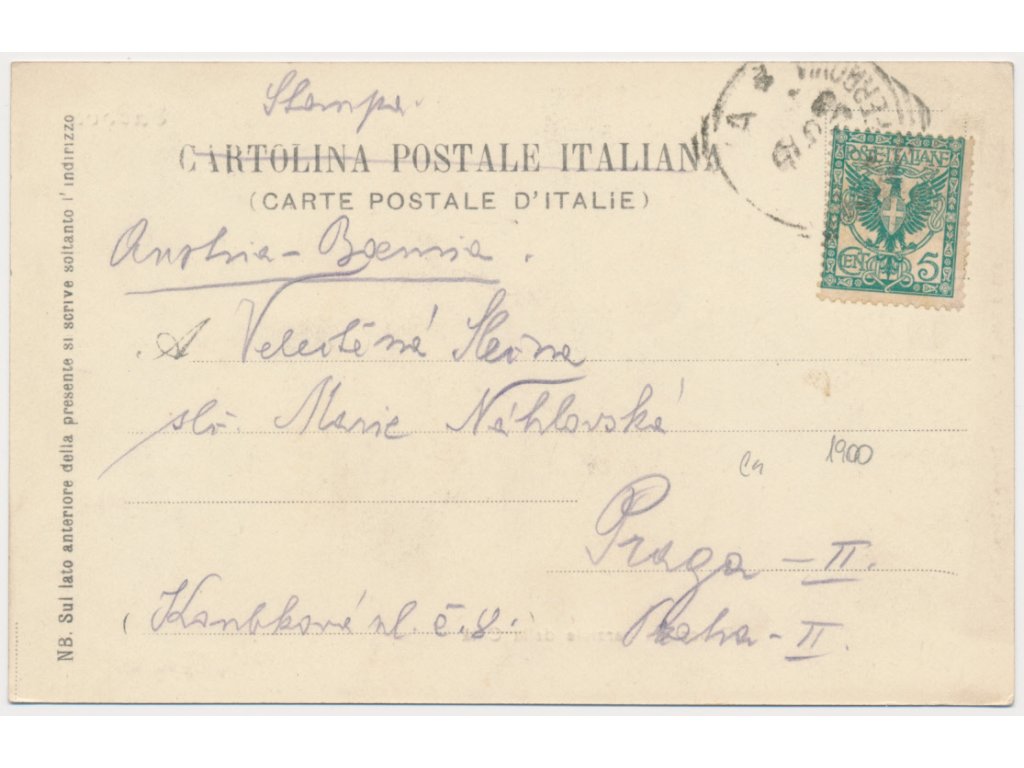 Stampa.
CARTOLINA POSTALE ITALIANA
(CARTE POSTALE D'ITALIE)
POSTE ITALIANE
CENT. 5
Austria – Boemia.
A Velectěná Slečna
slč. Marie Náhlovská
Ca 1900
Praga – II.
Praha – II.
(Koubková ul. č. 8.
NB. Sul lato anteriore della presente si scrive soltanto l'indirizzo